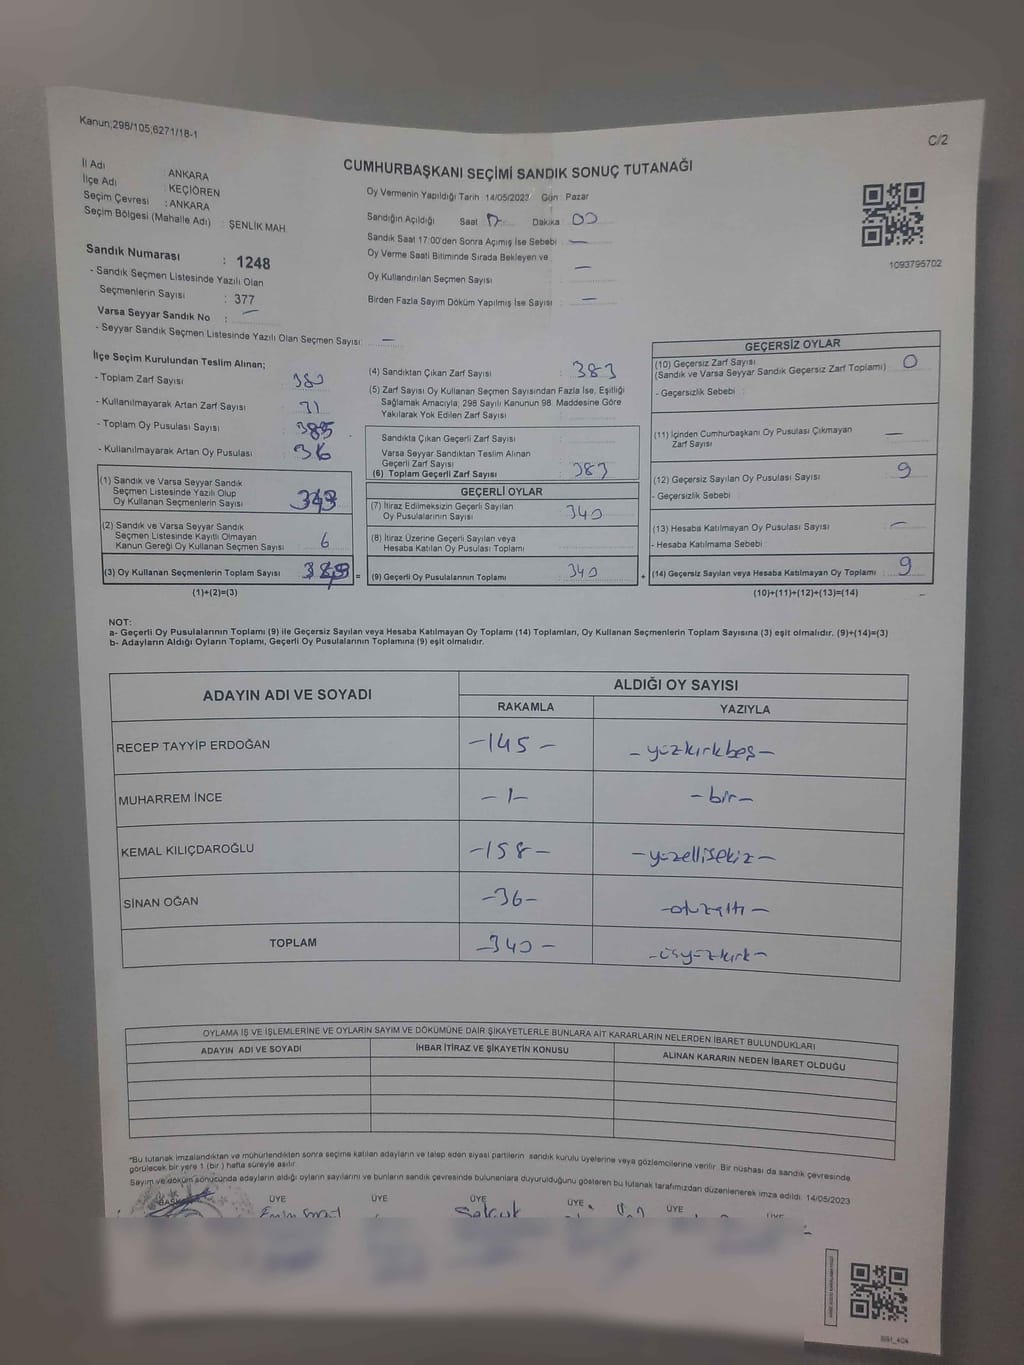 Kanun;298/105;6271/18-1
C/2
CUMHURBAŞKANI SEÇİMİ SANDIK SONUÇ TUTANAĞI
İl Adı : ANKARA
İlçe Adı : KEÇİÖREN
Seçim Çevresi : ANKARA
Seçim Bölgesi (Mahalle Adı) : ŞENLİK MAH.
Sandık Numarası : 1248
- Sandık Seçmen Listesinde Yazılı Olan
Seçmenlerin Sayısı : 377
Varsa Seyyar Sandık No : —
- Seyyar Sandık Seçmen Listesinde Yazılı Olan Seçmen Sayısı: —
Oy Vermenin Yapıldığı Tarih 14/05/2023 Gün : Pazar
Sandığın Açıldığı Saat 17 Dakika 00
Sandık Saat 17:00'den Sonra Açımış İse Sebebi : —
Oy Verme Saati Bitiminde Sırada Bekleyen ve
Oy Kullandırılan Seçmen Sayısı : —
Birden Fazla Sayım Döküm Yapılmış İse Sayısı : —
1093795702
İlçe Seçim Kurulundan Teslim Alınan;
- Toplam Zarf Sayısı :
- Kullanılmayarak Artan Zarf Sayısı :
- Toplam Oy Pusulası Sayısı : 385
- Kullanılmayarak Artan Oy Pusulası : 36
(1) Sandık ve Varsa Seyyar Sandık
Seçmen Listesinde Yazılı Olup
Oy Kullanan Seçmenlerin Sayısı :
(2) Sandık ve Varsa Seyyar Sandık
Seçmen Listesinde Kayıtlı Olmayan
Kanun Gereği Oy Kullanan Seçmen Sayısı : 6
(3) Oy Kullanan Seçmenlerin Toplam Sayısı : =
(1)+(2)=(3)
(4) Sandıktan Çıkan Zarf Sayısı : 383
(5) Zarf Sayısı Oy Kullanan Seçmen Sayısından Fazla İse, Eşitliği
Sağlamak Amacıyla; 298 Sayılı Kanunun 98. Maddesine Göre
Yakılarak Yok Edilen Zarf Sayısı :
Sandıkta Çıkan Geçerli Zarf Sayısı :
Varsa Seyyar Sandıktan Teslim Alınan
Geçerli Zarf Sayısı :
(6) Toplam Geçerli Zarf Sayısı : 383
GEÇERLİ OYLAR
(7) İtiraz Edilmeksizin Geçerli Sayılan
Oy Pusulalarının Sayısı : 340
(8) İtiraz Üzerine Geçerli Sayılan veya
Hesaba Katılan Oy Pusulası Toplamı :
(9) Geçerli Oy Pusulalarının Toplamı : 340 +
GEÇERSİZ OYLAR
(10) Geçersiz Zarf Sayısı
(Sandık ve Varsa Seyyar Sandık Geçersiz Zarf Toplamı) : 0
- Geçersizlik Sebebi :
(11) İçinden Cumhurbaşkanı Oy Pusulası Çıkmayan
Zarf Sayısı : —
(12) Geçersiz Sayılan Oy Pusulası Sayısı : 9
- Geçersizlik Sebebi :
(13) Hesaba Katılmayan Oy Pusulası Sayısı : —
- Hesaba Katılmama Sebebi :
(14) Geçersiz Sayılan veya Hesaba Katılmayan Oy Toplamı : 9
(10)+(11)+(12)+(13)=(14)
NOT:
a- Geçerli Oy Pusulalarının Toplamı (9) ile Geçersiz Sayılan veya Hesaba Katılmayan Oy Toplamı (14) Toplamları, Oy Kullanan Seçmenlerin Toplam Sayısına (3) eşit olmalıdır. (9)+(14)=(3)
b- Adayların Aldığı Oyların Toplamı, Geçerli Oy Pusulalarının Toplamına (9) eşit olmalıdır.
ADAYIN ADI VE SOYADI
ALDIĞI OY SAYISI
RAKAMLA YAZIYLA
RECEP TAYYİP ERDOĞAN -145- -yüzkırkbeş-
MUHARREM İNCE -1- -bir-
KEMAL KILIÇDAROĞLU -158- -yüzellisekiz-
SİNAN OĞAN -36- -otuzaltı-
TOPLAM -340- -üçyüzkırk-
OYLAMA İŞ VE İŞLEMLERİNE VE OYLARIN SAYIM VE DÖKÜMÜNE DAİR ŞİKAYETLERLE BUNLARA AİT KARARLARIN NELERDEN İBARET BULUNDUKLARI
ADAYIN ADI VE SOYADI İHBAR İTİRAZ VE ŞİKAYETİN KONUSU ALINAN KARARIN NEDEN İBARET OLDUĞU
"Bu tutanak imzalandıktan ve mühürlendikten sonra seçime katılan adayların ve talep eden siyasi partilerin sandık kurulu üyelerine veya gözlemcilerine verilir. Bir nüshası da sandık çevresinde
görülecek bir yere 1 (bir ) hafta süreyle asılır.
Sayım ve döküm sonucunda adayların aldığı oyların sayılarını ve bunların sandık çevresinde bulunanlara duyurulduğunu gösteren bu tutanak tarafımızdan düzenlenerek imza edildi. 14/05/2023
BAŞKAN ÜYE ÜYE ÜYE ÜYE ÜYE ÜYE
Selçuk